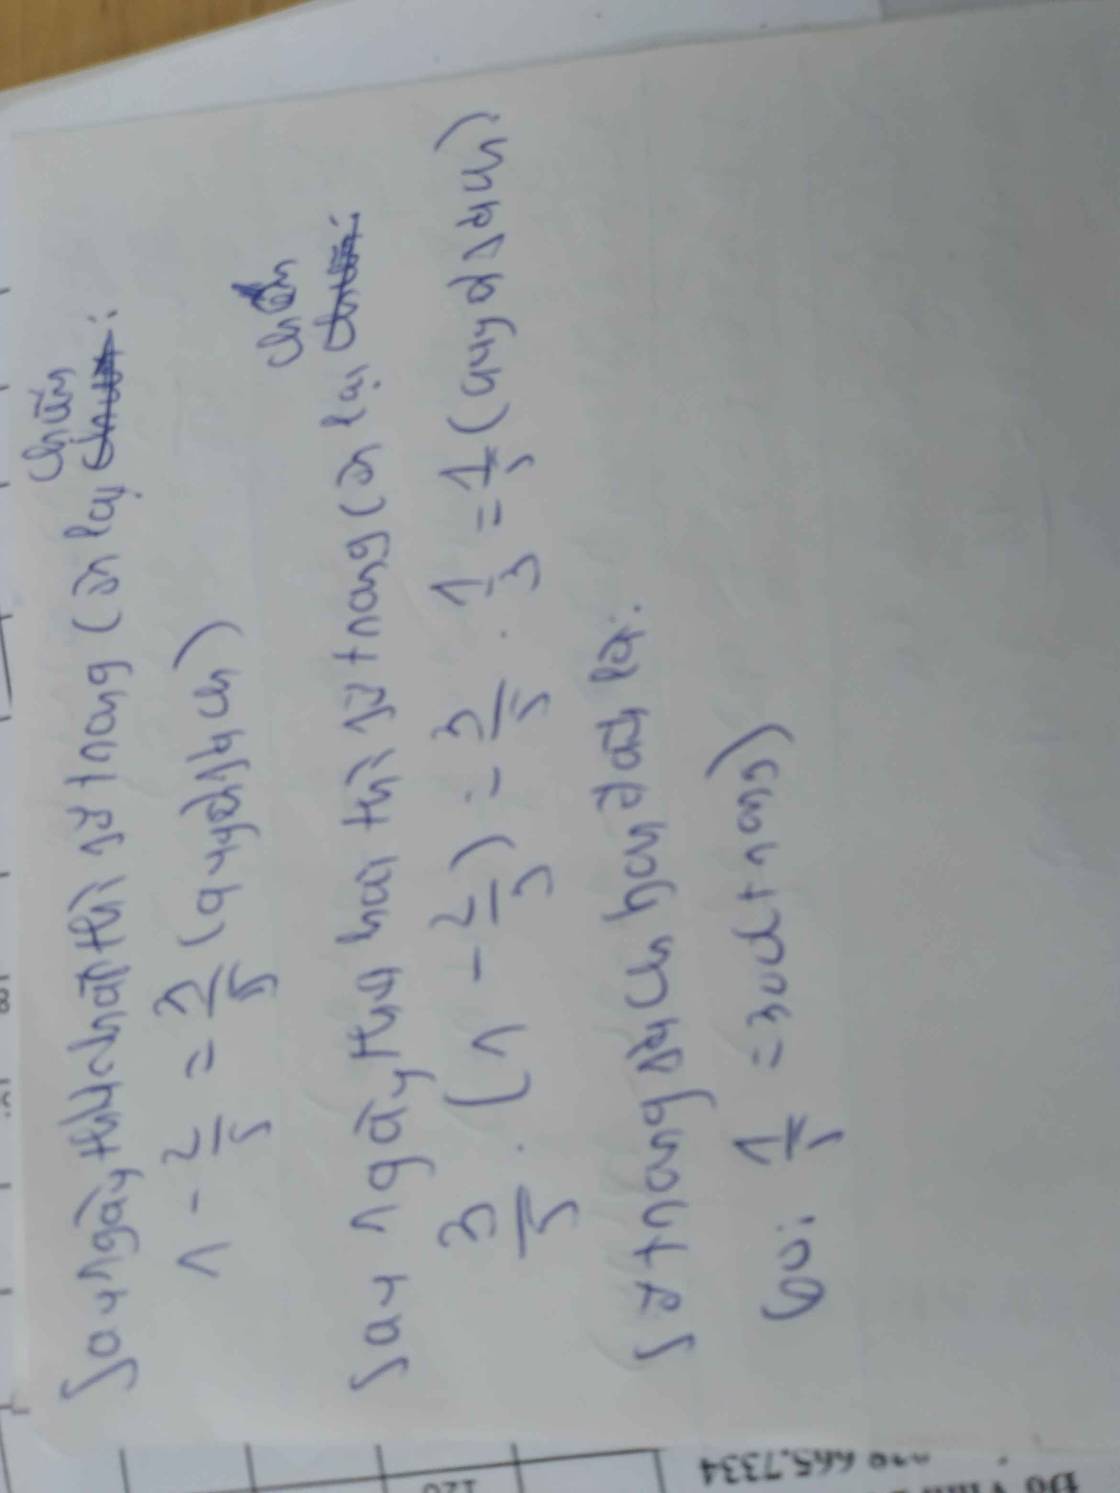 Sau ngày thứ nhất thì số trang còn lại chiếm
chiếm:
1 - 2/5 = 3/5 (quyển sách)
Sau ngày thứ hai thì số trang còn lại chiếm
chiếm:
3/5 . (1 - 2/3) = 3/5 . 1/3 = 1/5 (quyển sách)
Số trang sách bạn đấy là:
60: 1/5 = 300 (trang)
665.7334
120